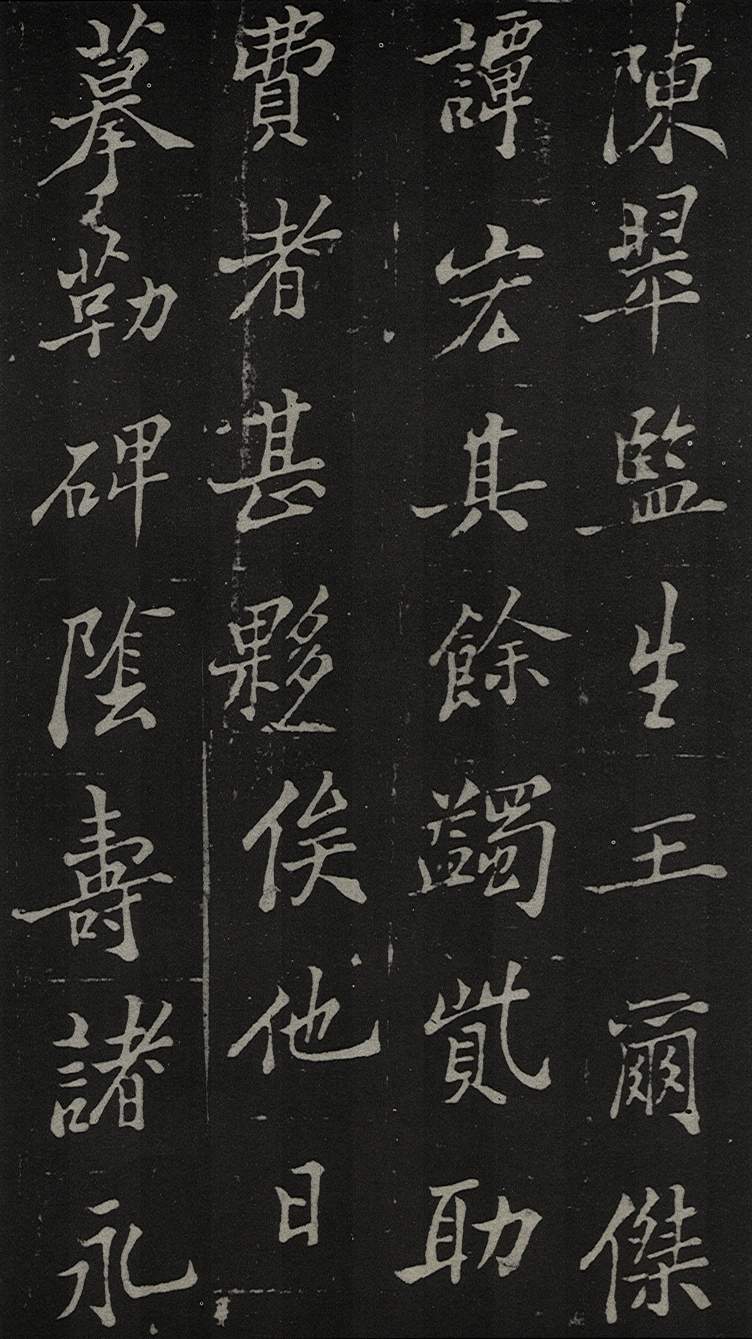 陳監生王爾傑
譚宏其餘蠲貲助
費者甚夥俟他日
摹勒碑陰壽諸永